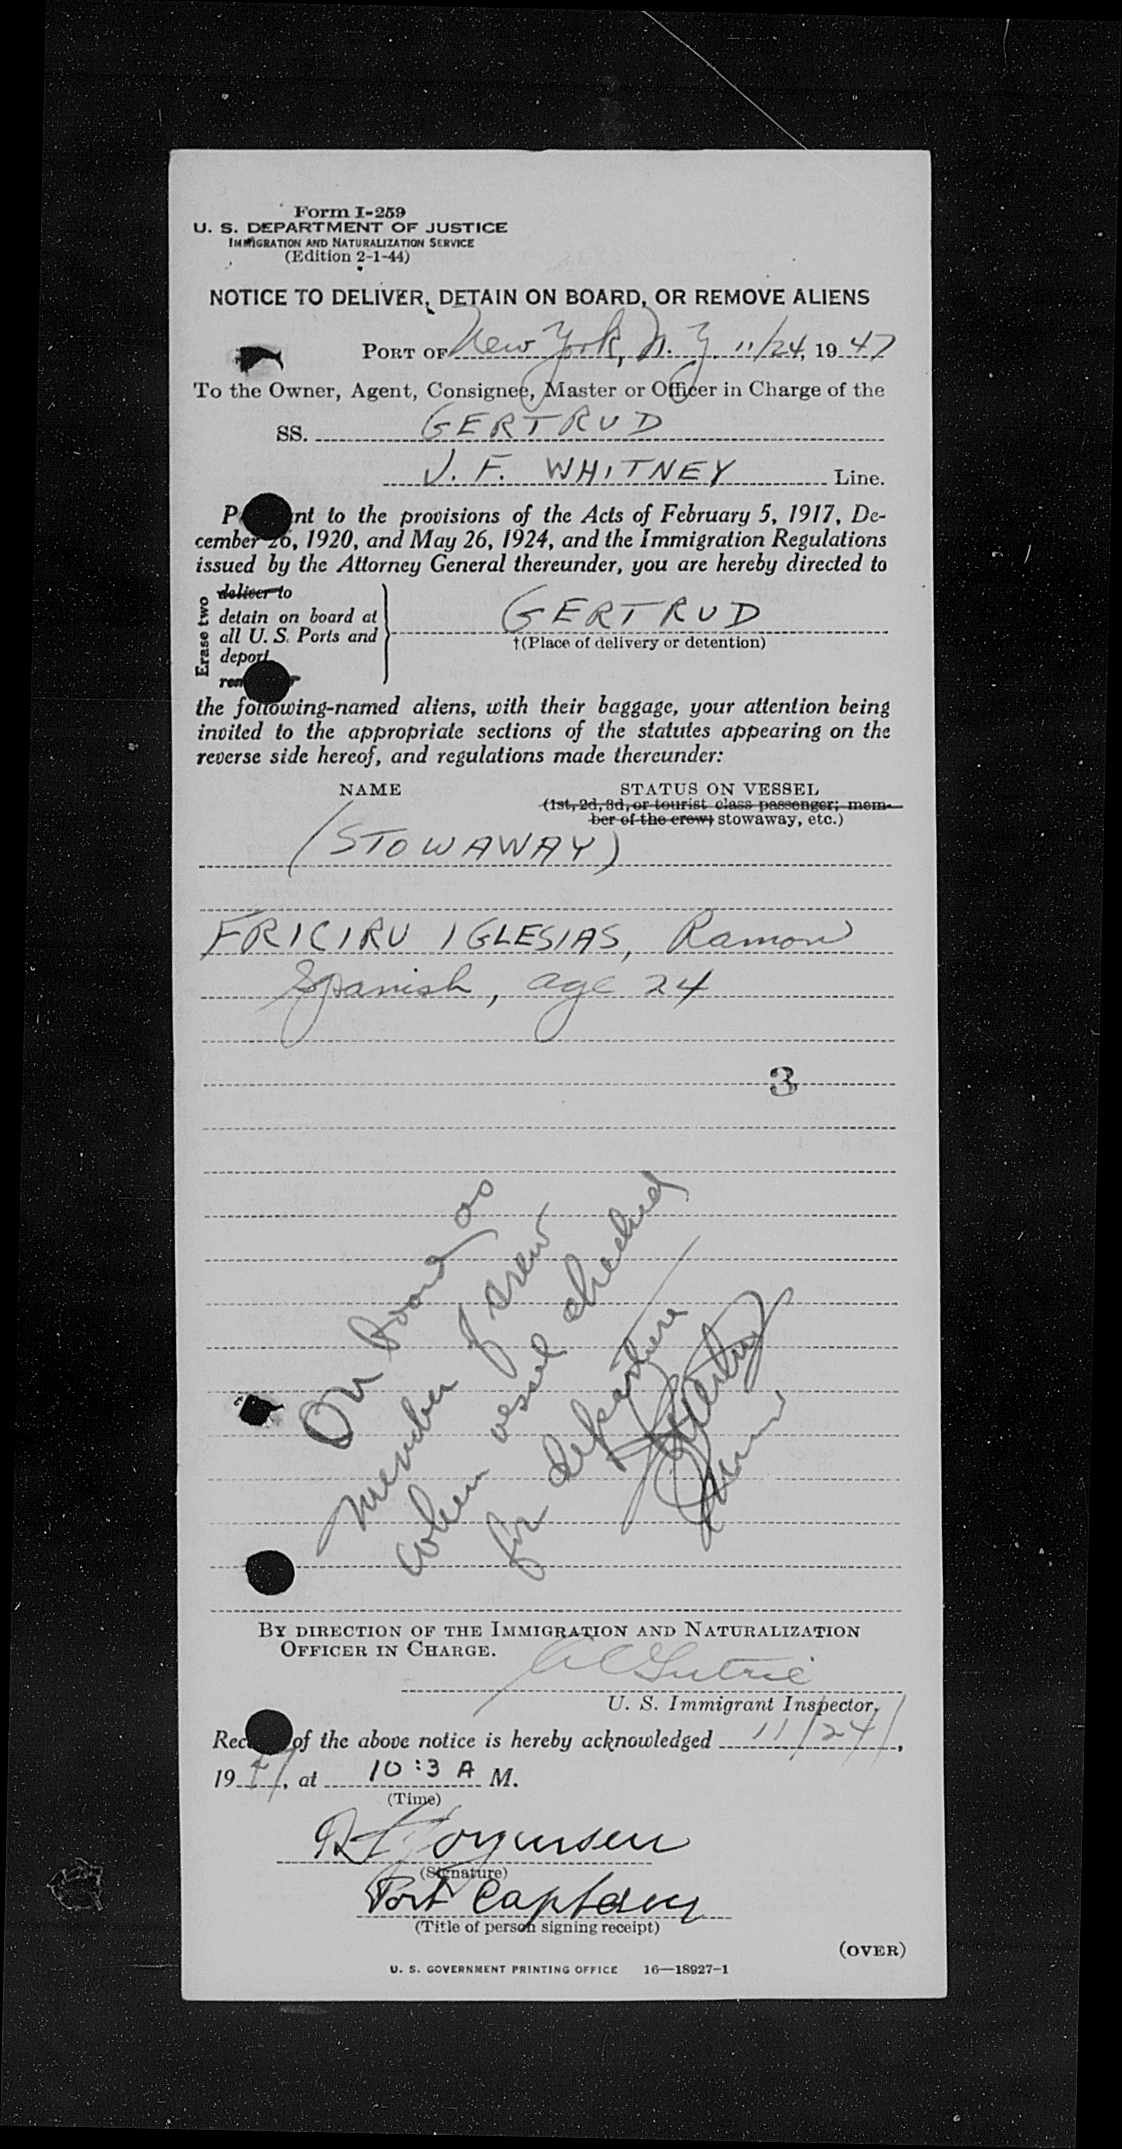 Form I-259
U. S. DEPARTMENT OF JUSTICE
IMMIGRATION AND NATURALIZATION SERVICE
(Edition 2-1-44)
NOTICE TO DELIVER, DETAIN ON BOARD, OR REMOVE ALIENS
PORT OF New York, N. Y 11/24, 19 47
To the Owner, Agent, Consignee, Master or Officer in Charge of the
SS. GERTRUD
J. F. WHITNEY Line.
P nt to the provisions of the Acts of February 5, 1917, De-
cember 26, 1920, and May 26, 1924, and the Immigration Regulations
issued by the Attorney General thereunder, you are hereby directed to
Erase two
deliver to
detain on board at
all U. S. Ports and
deport
GERTRUD
†(Place of delivery or detention)
the following-named aliens, with their baggage, your attention being
invited to the appropriate sections of the statutes appearing on the
reverse side hereof, and regulations made thereunder:
NAME STATUS ON VESSEL
(1st, 2d, 3d, or tourist class passenger; mem-
ber of the crew; stowaway, etc.)
(STOWAWAY)
FRICIRU IGLESIAS, Ramon
Spanish, age 24
3
On board as
member of crew
when vessel checked
for departure
BY DIRECTION OF THE IMMIGRATION AND NATURALIZATION
OFFICER IN CHARGE.
U. S. Immigrant Inspector.
Rec of the above notice is hereby acknowledged 11/24,
19 47, at 10:3 A M.
(Time)
Jorgensen
(Signature)
Port Captain
(Title of person signing receipt)
(OVER)
U. S. GOVERNMENT PRINTING OFFICE 16—18927-1